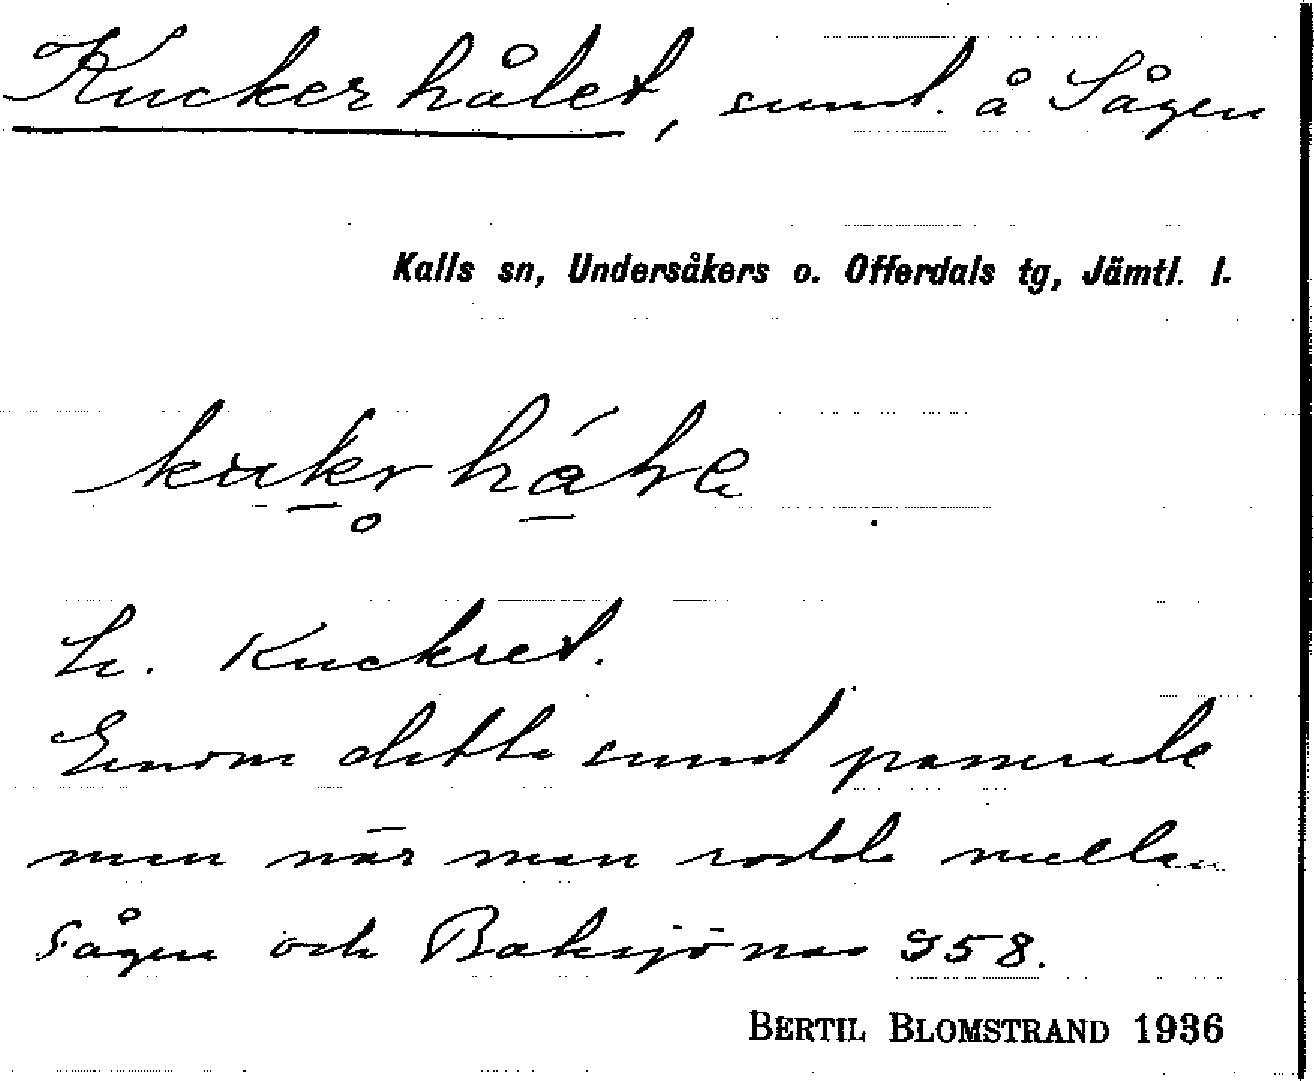 Kuckerhålet, sund. å Sågen
Kalls sn, Undersåkers o. Offerdals tg, Jämtl. l.
L. Kuckret.
Genom detta sund passerade
man när man rodde mellan
Sågen och Baksjönas 958.
BERTIL BLOMSTRAND 1936